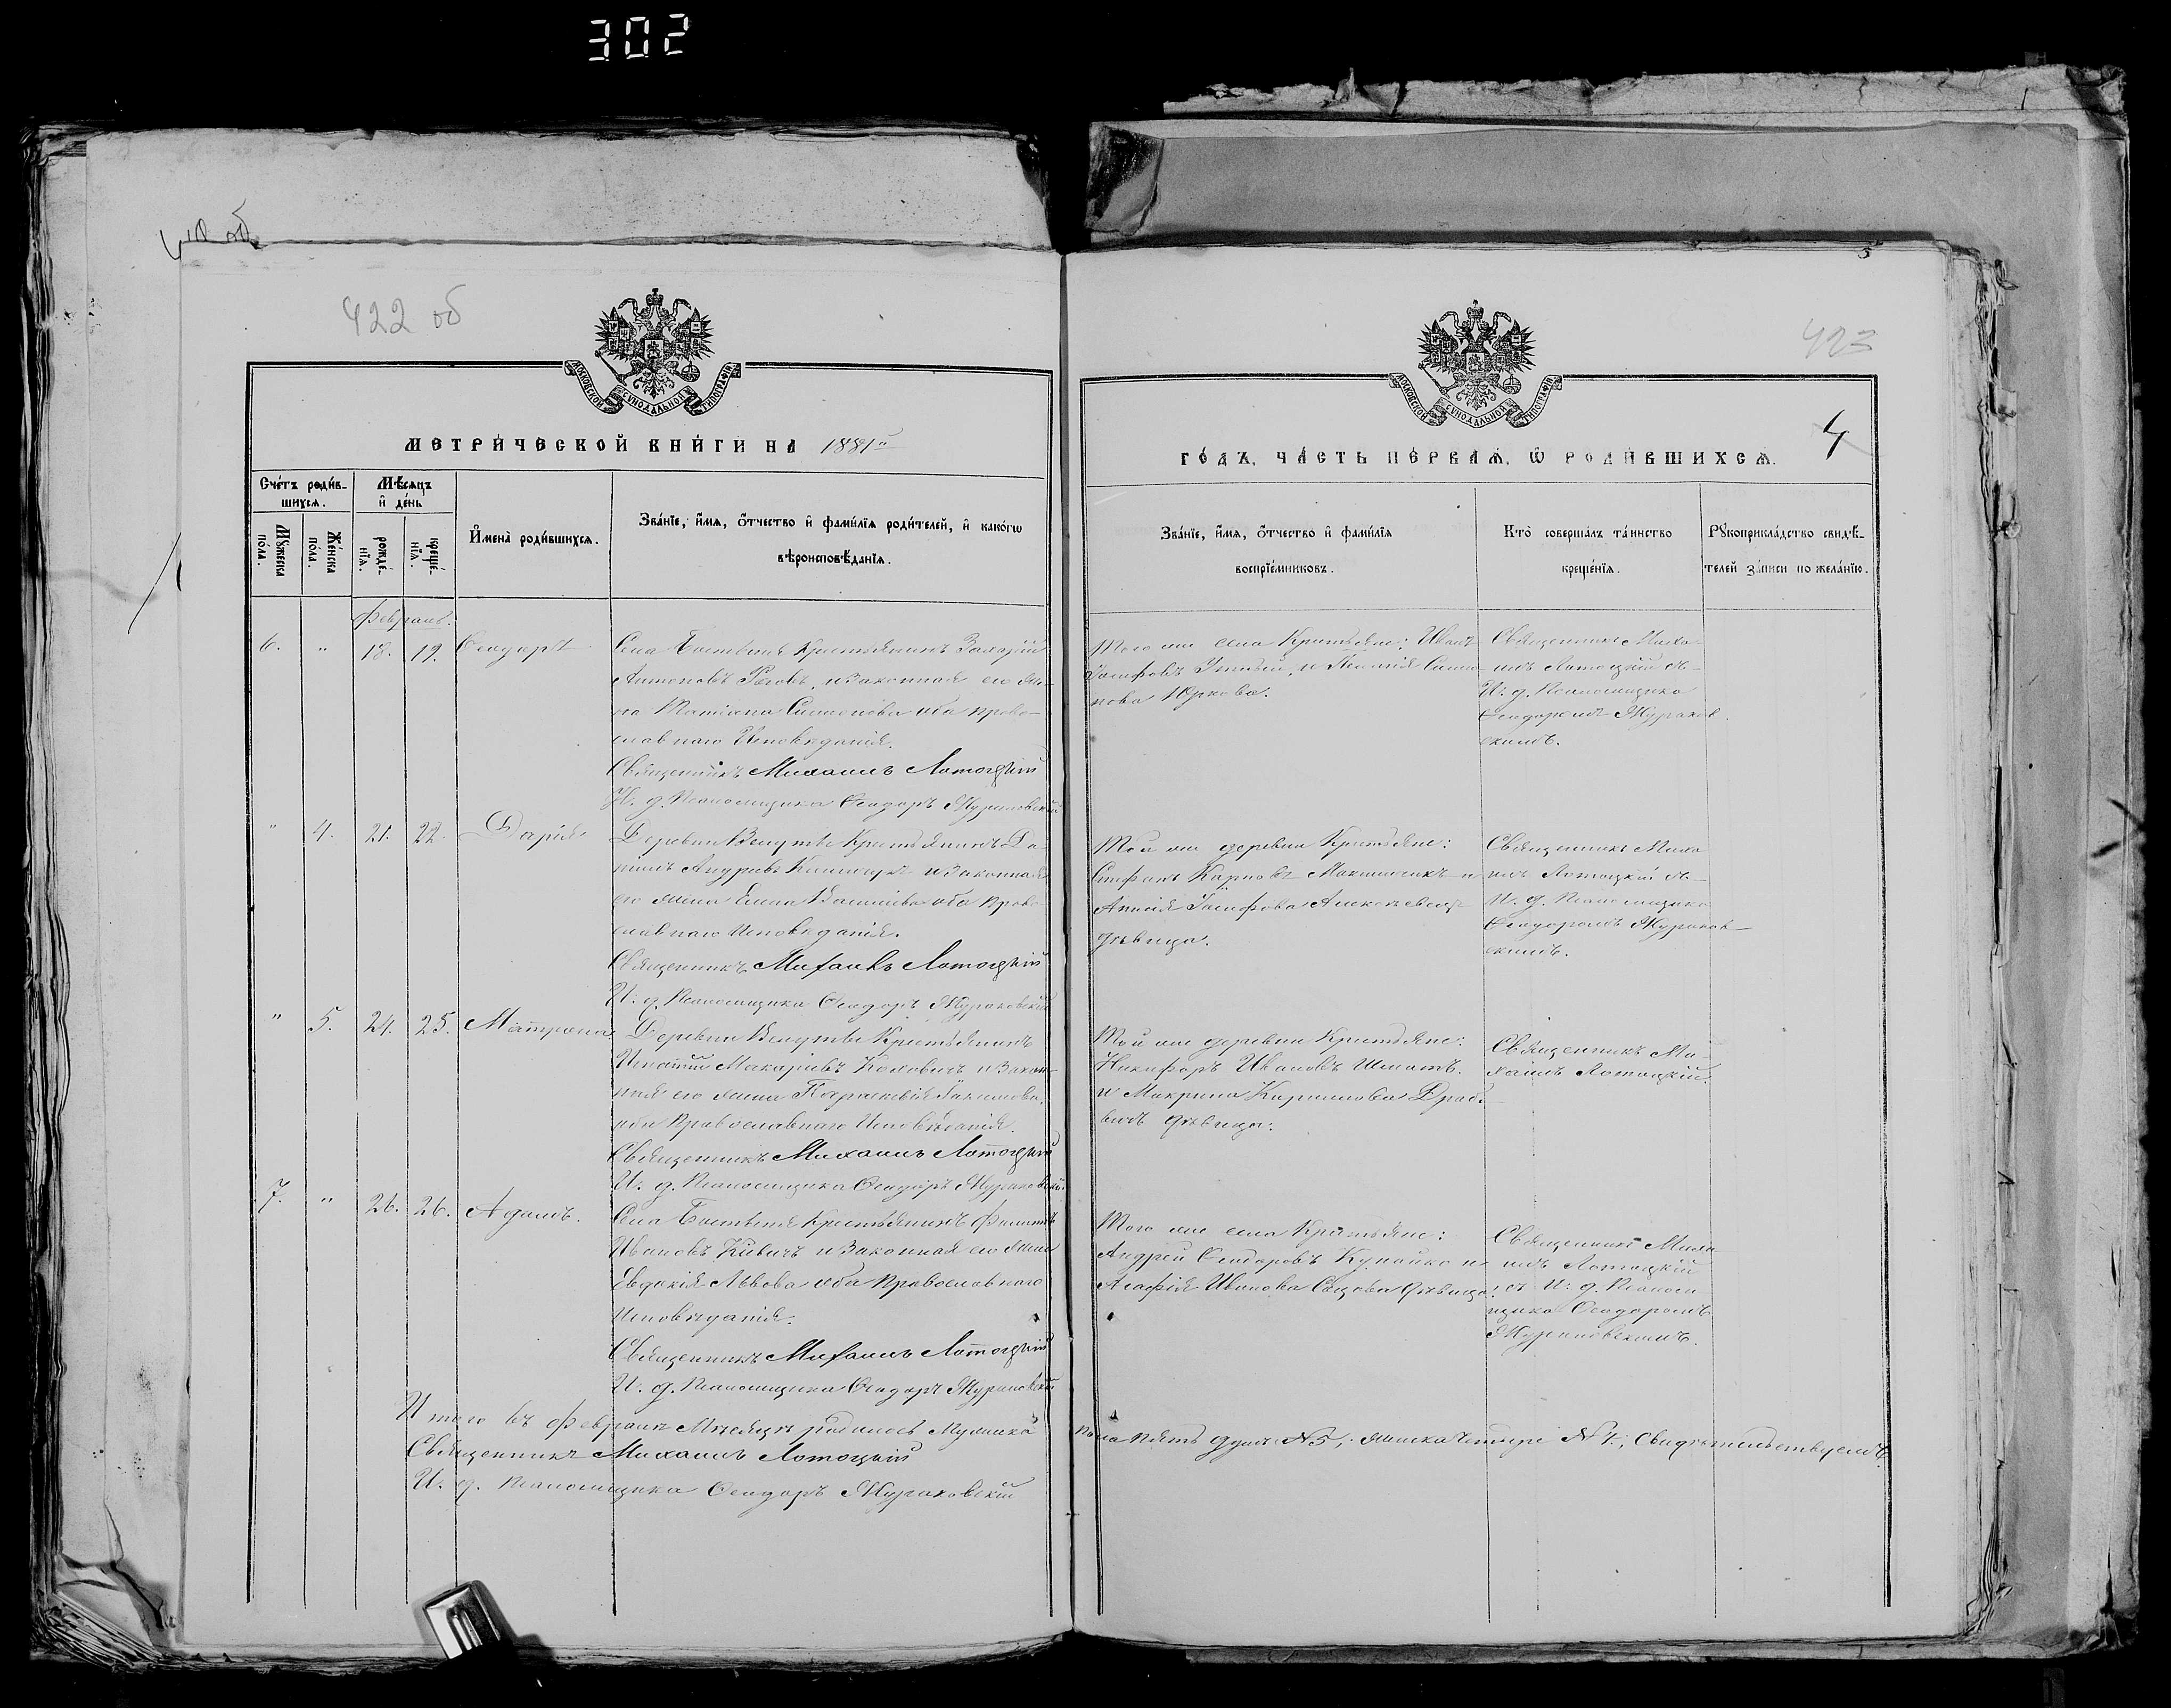 302
422 об
423
5
4
МОСКОВСКОЙ СѴНОДАЛЬНОЙ ТИПОГРАФІИ
МОСКОВСКОЙ СѴНОДАЛЬНОЙ ТИПОГРАФІИ
МЕТРИ́ЧЕСКОЙ КНИ́ГИ НА 1881й
ГО́ДЪ, ЧА́СТЬ ПЕ́РВАѦ, Ѡ РОДИ́ВШИХСѦ.
Сче́тъ роди́в-
шихсѧ.
Мѣ́сѧцъ
и҆ де́нь
Мꙋ́жеска
по́ла.
Же́нска
по́ла.
рожде́-
нїѧ.
креще́-
нїѧ.
И҆мена̀ роди́вшихсѧ.
Зва́нїе, и҆́мѧ, ѻ҆́тчество и҆ фами́лїѧ роди́телей, и҆ како́гѡ
вѣроисповѣ́данїѧ.
Зва́нїе, и҆́мѧ, ѻ҆́тчество и҆ фами́лїѧ
воспрїе́мниковъ.
Кто̀ соверша́лъ та́инство
креще́нїѧ.
Рꙋкоприкла́дство свидѣ́-
телей за́писи по жела́нїю.
Февраль.
6. " 18. 19. Ѳеодоръ
Крестьянинъ Захарій
Антоновъ и законная его же-
на Татіана Симонова оба право-
славнаго Исповѣданія.
Священникъ Михаилъ Лотоцкій
И. д. Псаломщика Ѳеодоръ Жураковскій
Того же села Крестьяне: Иванъ
Іосифовъ
нова Юркова.
Священникъ Миха-
илъ Лотоцкій съ
И. д. Псаломщика
Ѳеодоромъ Жураков-
скимъ.
" 4. 21. 22. Дарія
Деревни Крестьянинъ Да-
ніилъ Андреевъ и законная
его жена Елена Васильева оба право-
славнаго Исповѣданія.
Священникъ Михаилъ Лотоцкій
И. д. Псаломщика Ѳеодоръ Жураковскій
Той же деревни Крестьяне:
Стефанъ Карповъ Максимчикъ и
Іосифова
дѣвица.
Священникъ Миха-
илъ Лотоцкій съ
И. д. Псаломщика
Ѳеодоромъ Жураков-
скимъ.
" 5. 24. 25. Матрона
Деревни Крестьянинъ
Игнатій Макаріевъ и закон-
ная его жена Параскевія Іакимова,
оба Православнаго Исповѣданія.
Священникъ Михаилъ Лотоцкій
И. д. Псаломщика Ѳеодоръ Жураковскій
Той же деревни Крестьяне:
Никифоръ Ивановъ
и Макрина Кириллова
дѣвица.
Священникъ Ми-
хаилъ Лотоцкій.
7. " 26. 26. Адамъ.
Крестьянинъ Филиппъ
Ивановъ и законная его жена
Евдокія Львова оба Православнаго
Исповѣданія.
Священникъ Михаилъ Лотоцкій
И. д. Псаломщика Ѳеодоръ Жураковскій
Того же села Крестьяне:
Андрей Ѳеодоровъ и
Агафія Иванова дѣвица.
Священникъ Миха-
илъ Лотоцкій
съ И. д. Псалом-
щика Ѳеодоромъ
Жураковскимъ.
Итого въ Февралѣ Мѣсяцѣ родилось Мужеска
пола пять душъ №5; женска четыре №4; Свидѣтельствуемъ
Священникъ Михаилъ Лотоцкій
И. д. Псаломщика Ѳеодоръ Жураковскій